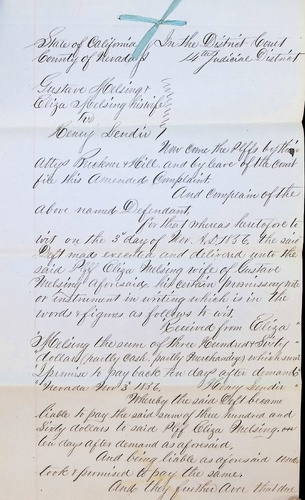 State of California } In the District Court
County of Nevada } 14th Judicial District
Gustave Melsing &
Eliza Melsing his wife
vs
Henry Sendir
Now come the Plffs by their
Attys Buckner & Hill and by leave of the court
file this Amended Complaint.
And complain of the
above named Defendant,
for that whereas heretofore to
wit on the 3d day of Nov. A.D. 1856. the said
Deft made executed and delivered unto the
said Plff Eliza Melsing wife of Gustave
Melsing aforesaid his certain promissory note
or instrument in writing which is in the
words & figures as follows to wit.
"Received from Eliza
Melsing the sum of three Hundred & Sixty
dollars, (partly Cash, partly Merchandize) which sum
I promise to pay back ten day after demand
Nevada Nov 3d 1856. Henry Sendir
Whereby the said Deft became
liable to pay the said sum of three hundred and
Sixty dollars to said Plff Eliza Melsing, on
ten days after demand as aforesaid.
And being liable as aforesaid under
took & promised to pay the same.
And they further Aver that